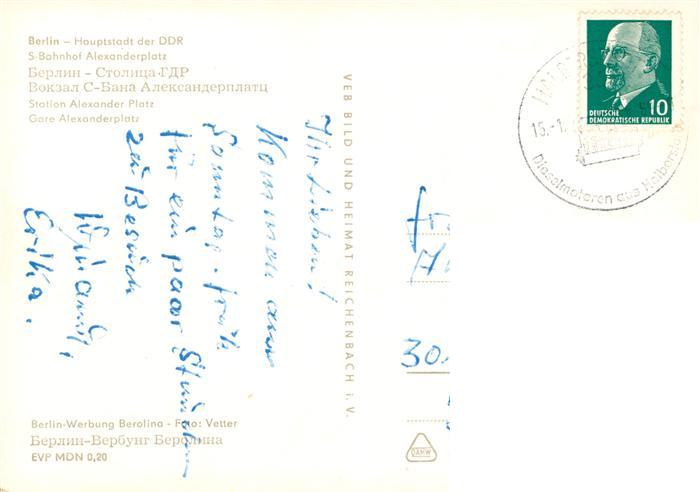 Berlin – Hauptstadt der DDR
S-Bahnhof Alexanderplatz
Берлин – Столица·ГДР
Вокзал С-Бана Александерплатц
Station Alexander Platz
Gare Alexanderplatz
Ihr Lieben!
Kommen am
Sonntag. früh
für ein paar Stunden
zu Besuch
Erika.
VEB BILD UND HEIMAT REICHENBACH i. V.
DEUTSCHE
DEMOKRATISCHE REPUBLIK
10
15.-1.
Dieselmotoren aus Halberstadt
30
DAMW
Berlin-Werbung Berolina – Foto: Vetter
Берлин-Вербунг Беролина
EVP MDN 0,20